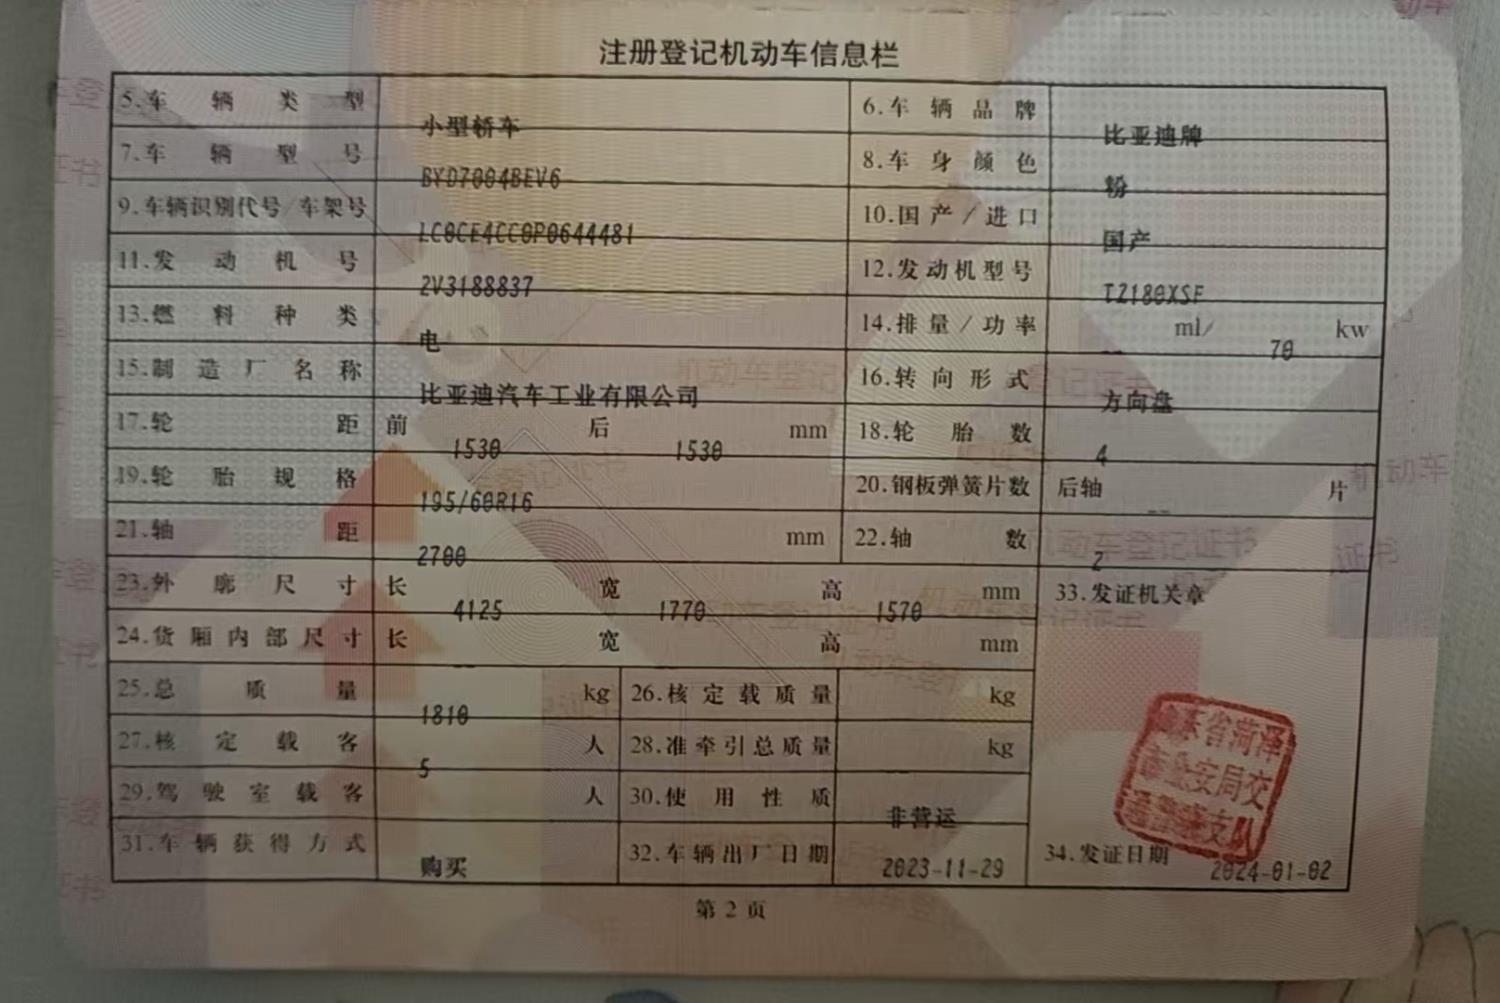 注册登记机动车信息栏
5.车辆类型 小型轿车 6.车辆品牌 比亚迪牌
7.车辆型号 BYD7004BEV6 8.车身颜色 粉
9.车辆识别代号/车架号 LC0CE4CC0P0644481 10.国产/进口 国产
11.发动机号 2V3188837 12.发动机型号 TZ180XSF
13.燃料种类 电 14.排量/功率 -- ml/ 70 kw
15.制造厂名称 比亚迪汽车工业有限公司 16.转向形式 方向盘
17.轮距 前 1530 后 1530 mm 18.轮胎数 4
19.轮胎规格 195/60R16 20.钢板弹簧片数 后轴 -- 片
21.轴距 2700 mm 22.轴数 2
23.外廓尺寸 长 4125 宽 1770 高 1570 mm 33.发证机关章
24.货厢内部尺寸 长 -- 宽 -- 高 -- mm
25.总质量 1810 kg 26.核定载质量 -- kg
27.核定载客 5 人 28.准牵引总质量 -- kg
29.驾驶室载客 人 30.使用性质 非营运
31.车辆获得方式 购买 32.车辆出厂日期 2023-11-29 34.发证日期 2024-01-02
山东省菏泽
市公安局交
通警察支队
第2页